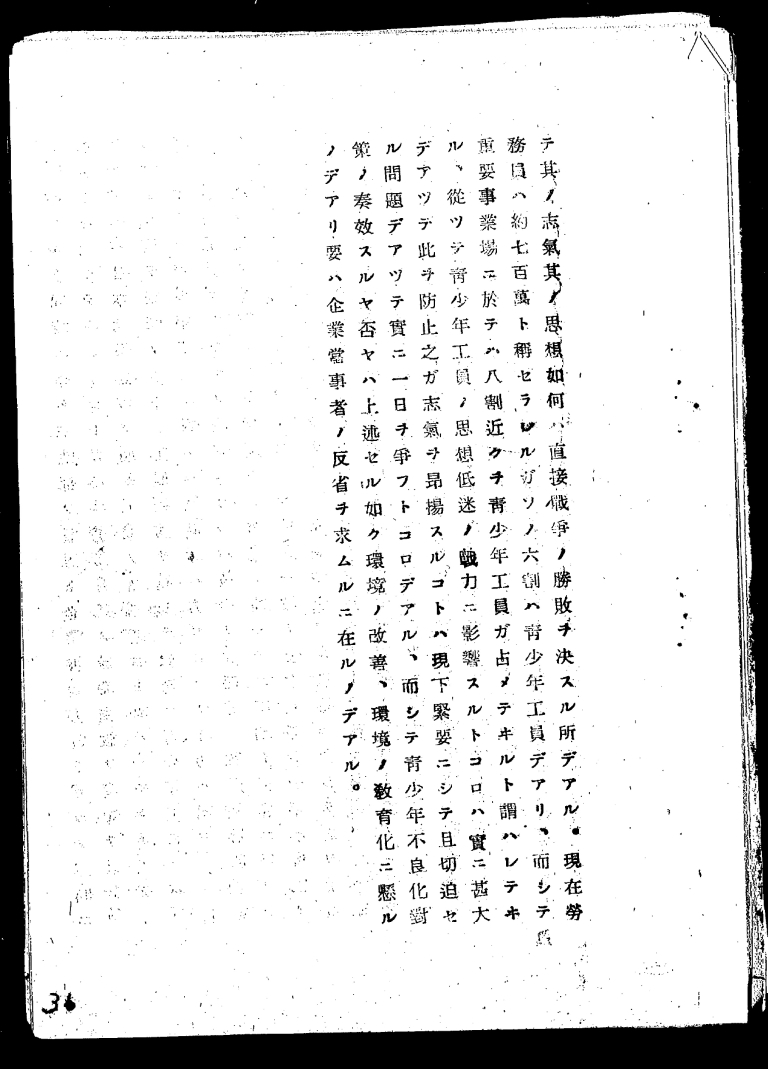 テ其ノ志氣其ノ思想如何ハ直接戰爭ノ勝敗ヲ決スル所デアル。現在勞
務員ハ約七百萬ト稱セラレルガソノ六割ハ靑少年工員デアリ、而シテ
重要事業場ニ於テハ八割近クヲ靑少年工員ガ占メテヰルト謂ハレテヰ
ル、從ツテ靑少年工員ノ思想低迷ノ戰力ニ影響スルトコロハ實ニ甚大
デアツテ此ヲ防止之ガ志氣ヲ昂揚スルコトハ現下緊要ニシテ且切迫セ
ル問題デアツテ實ニ一日ヲ爭フトコロデアル、而シテ靑少年不良化對
策ノ奏效スルヤ否ヤハ上述セル如ク環境ノ改善、環境ノ敎育化ニ懸ル
ノデアリ要ハ企業當事者ノ反省ヲ求ムルニ在ルノデアル。
36